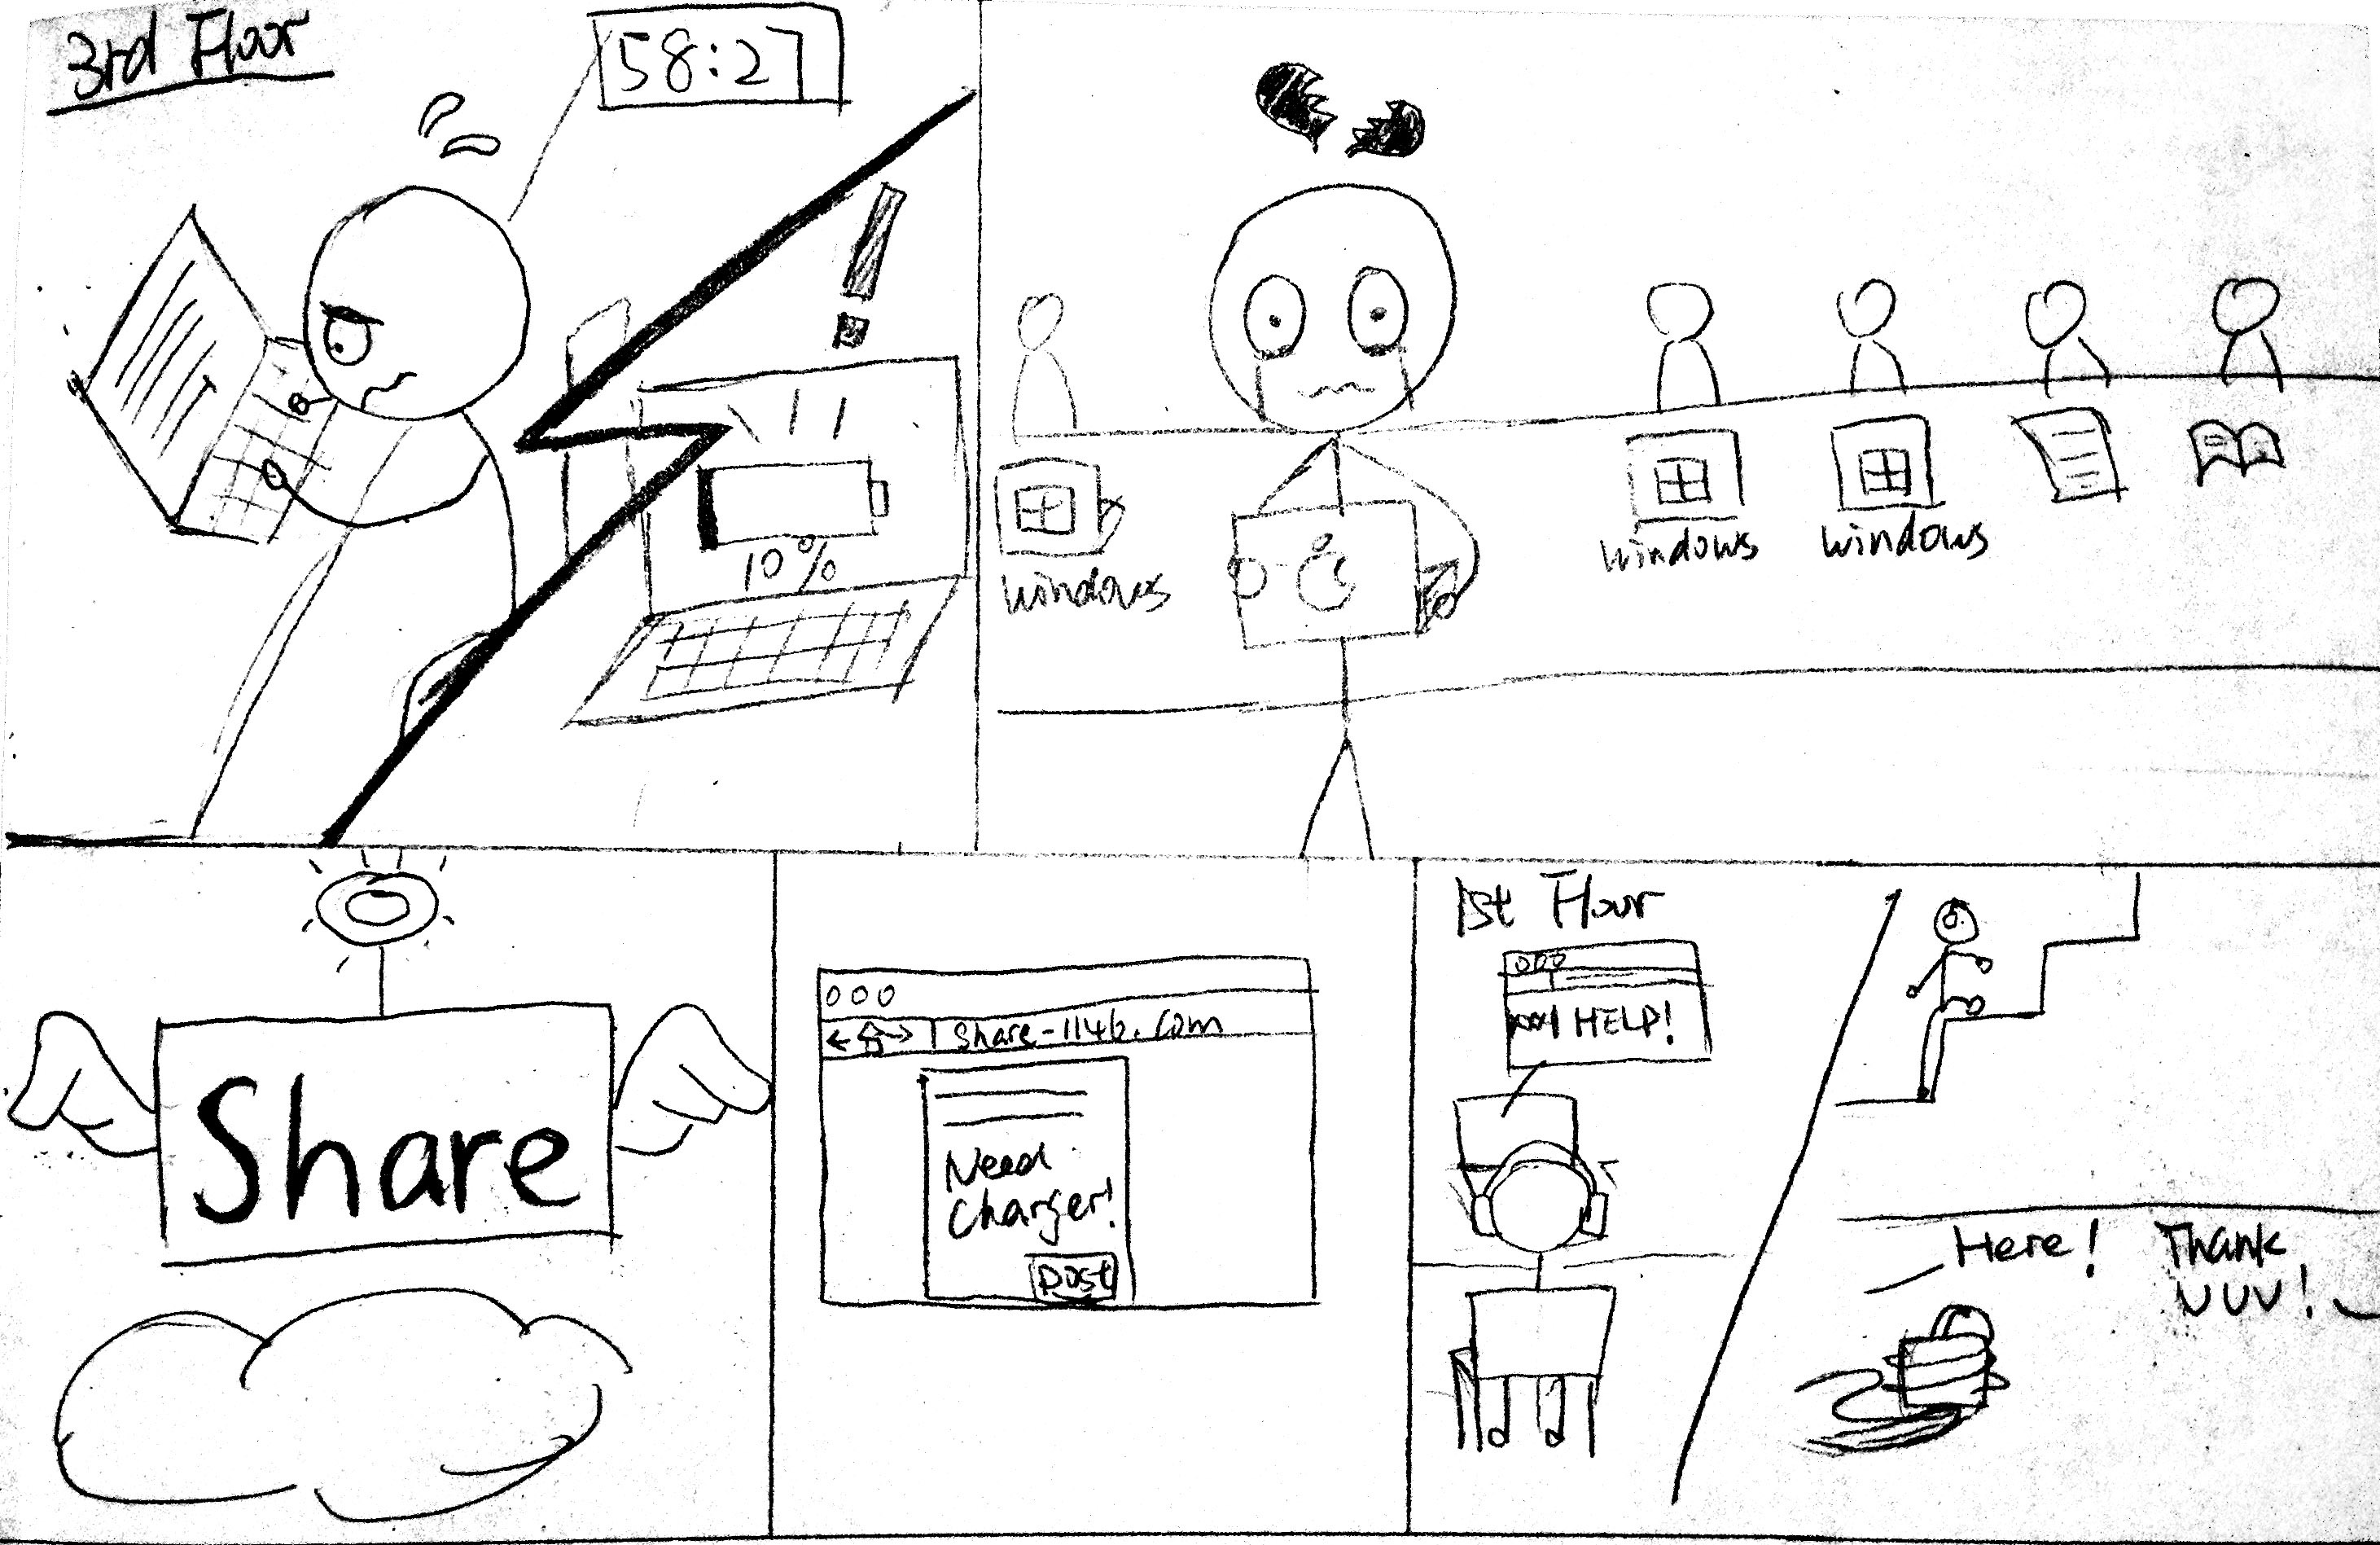 3rd Floor
58:27
10%
windows
windows
windows
Share
share-1146.com
Need
Charger!
post
1st Floor
HELP!
Here!
Thank
UUU!